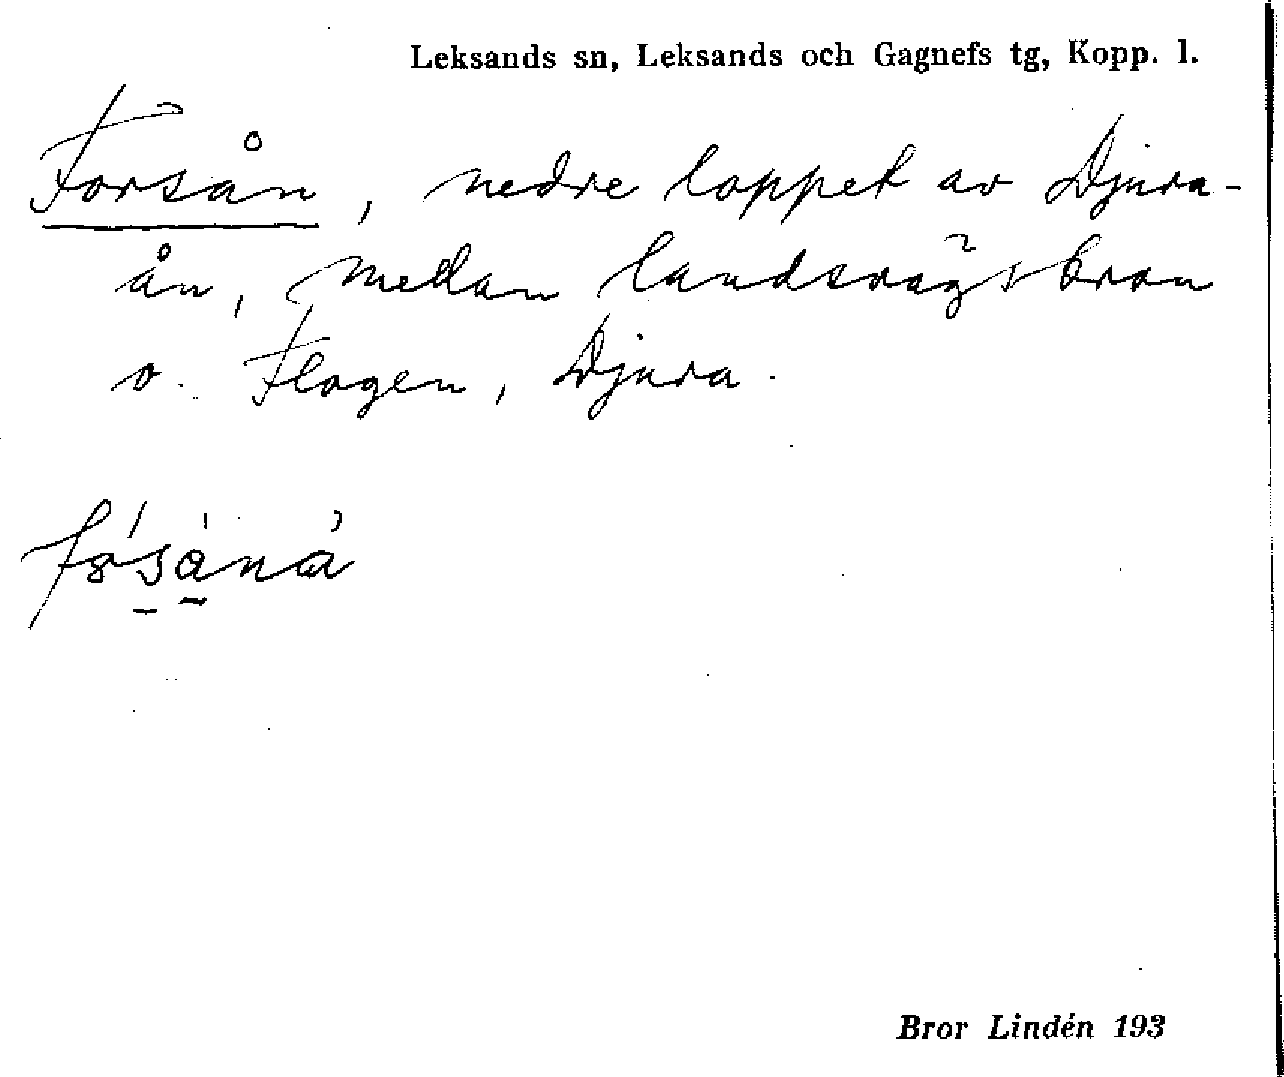 Leksands sn, Leksands och Gagnefs tg, Kopp. l.
Forsån, nedre loppet av Djura-
ån, mellan landsvägsbron
o. Flogen, Djura.
Bror Lindén 193